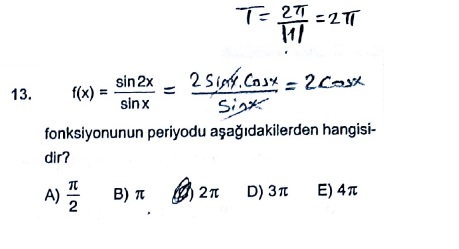 T = 2π/|1| = 2π
13. f(x) = sin2x/sinx = 2Sinx.Cosx/Sinx = 2Cosx
fonksiyonunun periyodu aşağıdakilerden hangisi-
dir?
A) π/2 B) π C) 2π D) 3π E) 4π